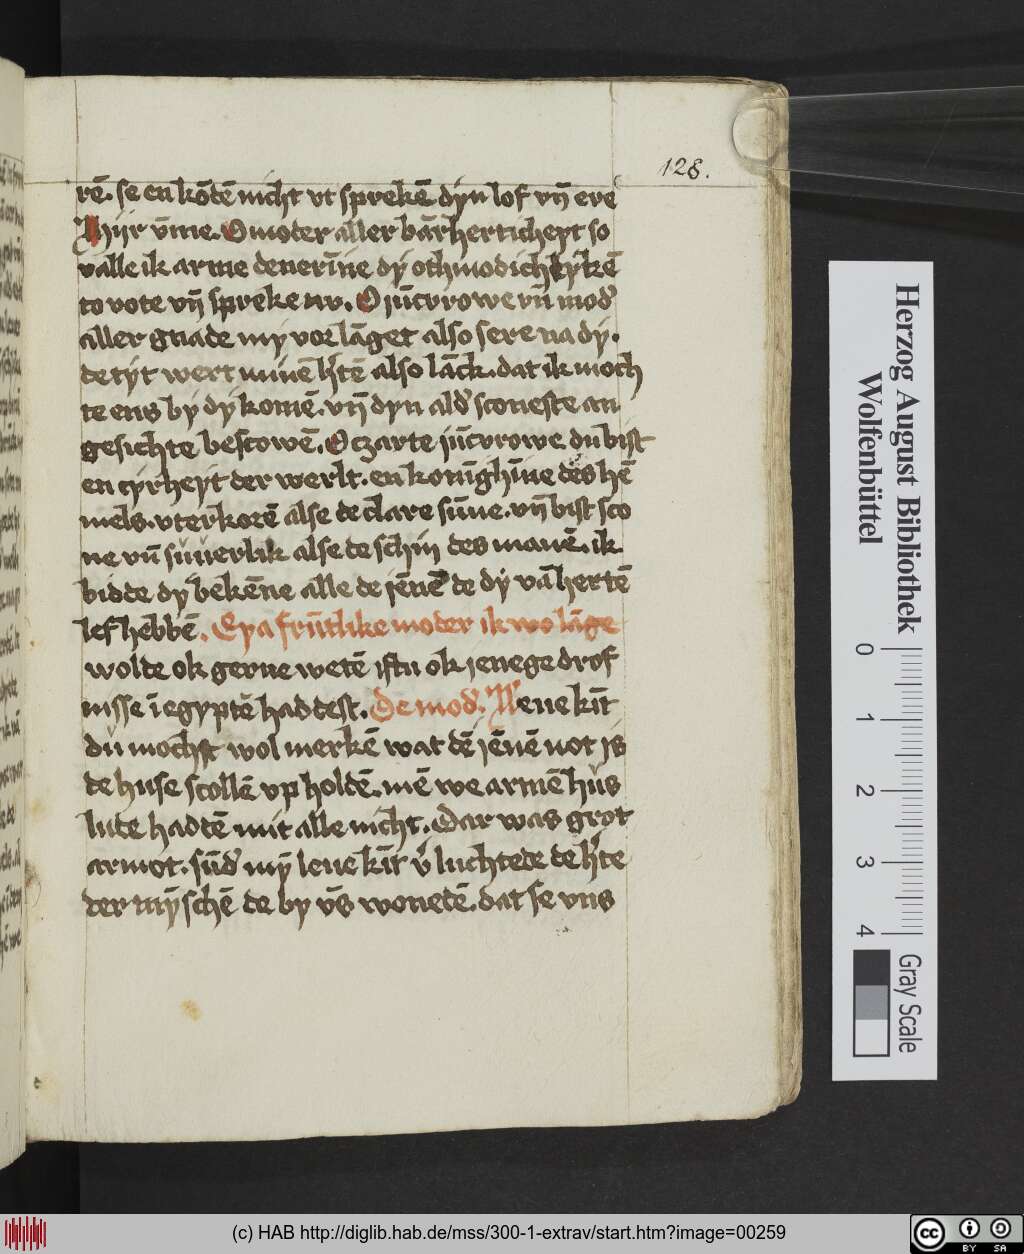 128.
rē. se en kōdē nicht vt sprekē dyn lof vn̄ ere
Hiir v̄me. O moder aller bārherticheyt so
valle ik arme denerīne dy othmodichlykē
to vote vn̄ spreke aw. O jūcvrowe vn̄ mod̓
aller gnade my vorlāget also sere na dy.
de tyt wert minē h̓tē also lāck. dat ik moch
te ens by dy komē. vn̄ dyn ald̓ sconeste an
gesichte bescowē. O czarte jūcvrowe du bist
en cyrheyt der werlt. en konīghīne des hē
mels. vterkorē alse de clare sūne. vn̄ bist sco
ne vn̄ suuerlik alse de schin des manē. ik
bidde dy bekēne alle de jēnē de dy vā hertē
lef hebbē. Eya frūtlike moder ik wo lāge
wolde ok gerne wetē istu ok jenege drof
nisse ī egyptē haddest. De mod̓. Leue kīt
du mochst wol merkē wat dē jēnē not is
de huse scollē vp holdē. mē we armē hus
lude hadtē mit alle nicht. Dar was grot
armot. sūd̓ my leue kīt v̓luchtede de h̓te
der mȳschē de by v̄s wonedē. dat se vns
Herzog August Bibliothek
Wolfenbüttel
0 1 2 3 4
Gray Scale
(c) HAB http://diglib.hab.de/mss/300-1-extrav/start.htm?image=00259
cc BY SA